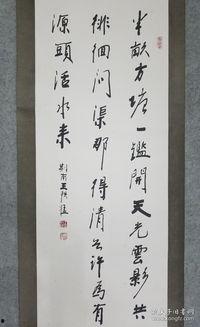 半畝方塘一鑑開天光雲影共
徘徊問渠那得清如許為有
源頭活水来